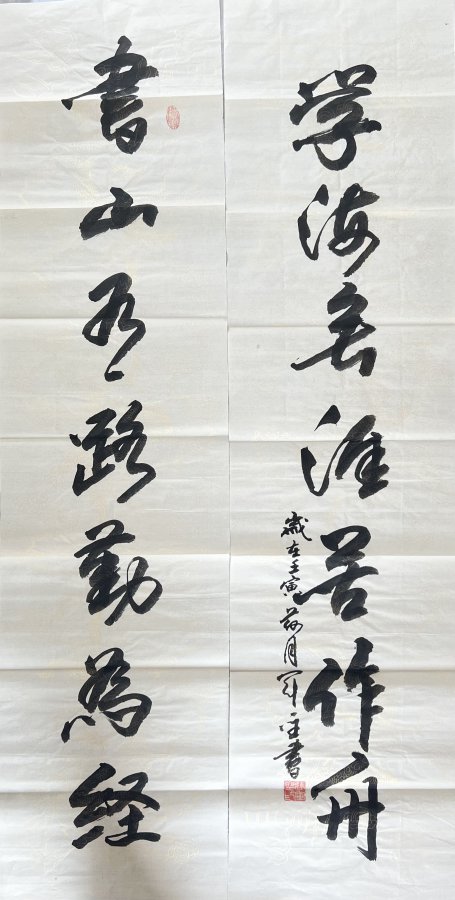 書山有路勤為经
学海無涯苦作舟
歲在壬寅月書